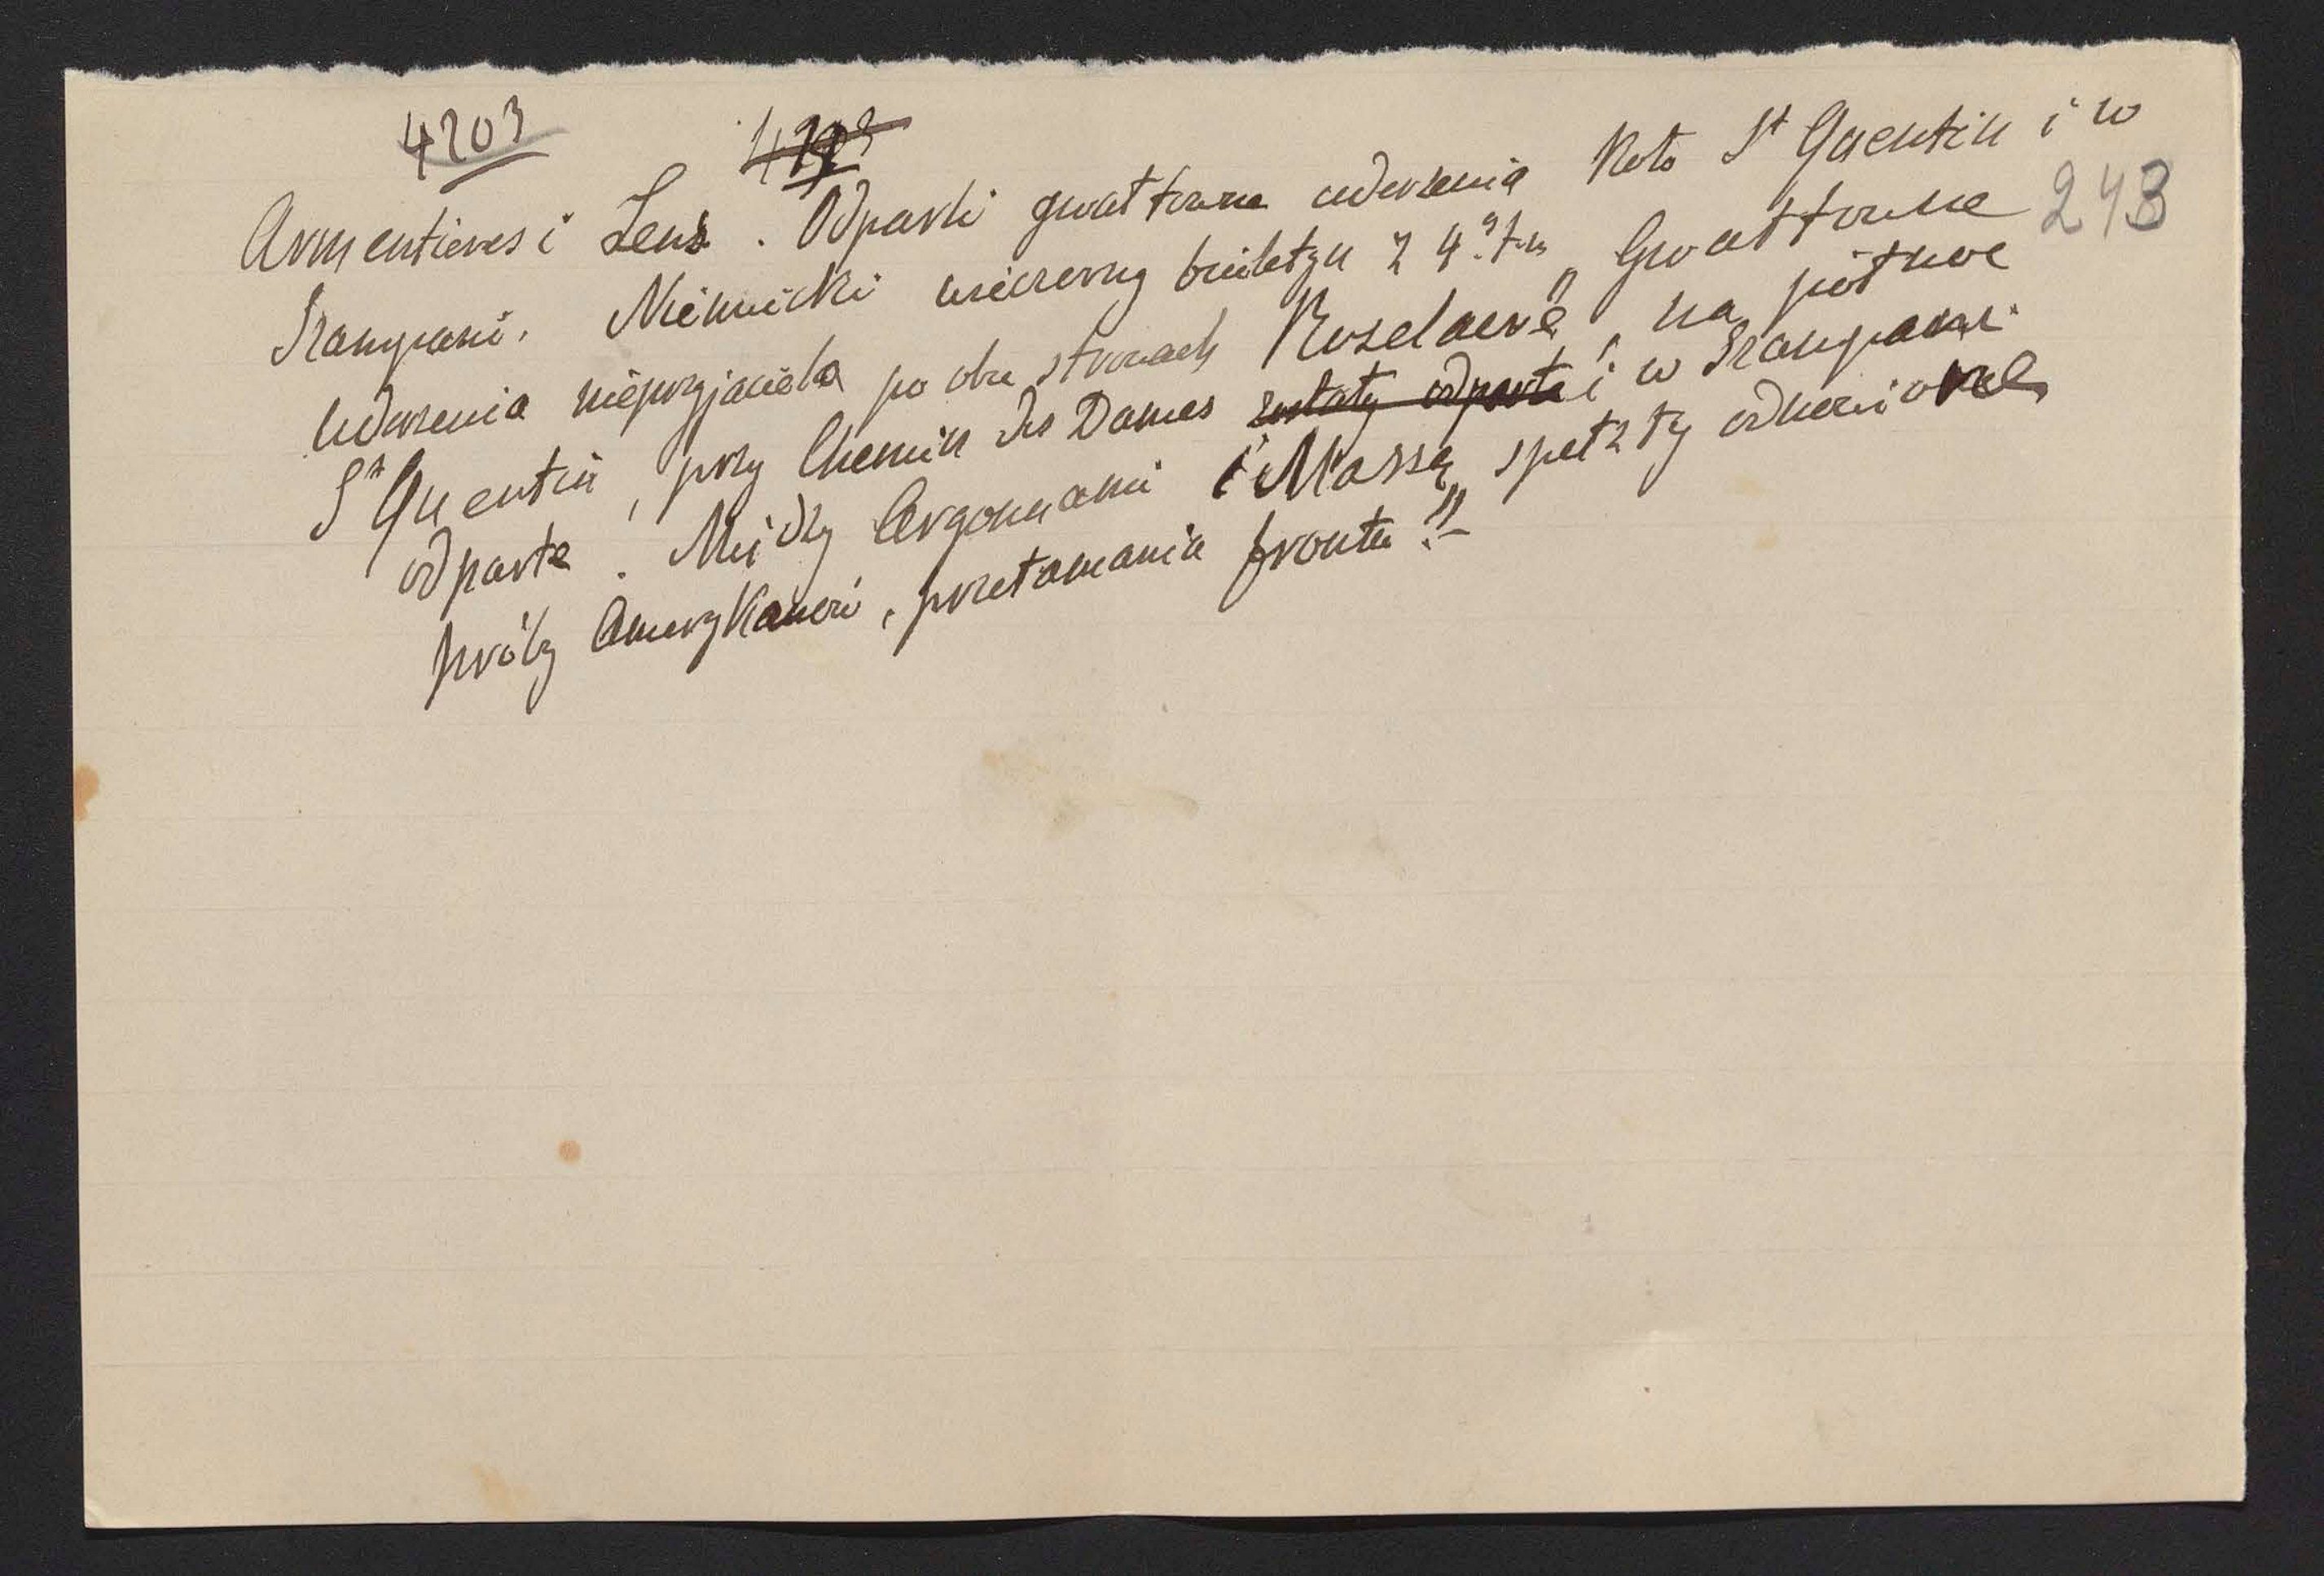 4203 4203
243
Armentieres i Lens. Odparli gwałtowne uderzenia koło St Quentin i w
Szampani. Niemiecki wieczorny biuletyn z 4go "Gwałtowne
uderzenia nieprzyjaciela po obu stronach Roselaere, na północ
St Quentin, przy Chemin des Dames zostały odparte i w Szampani
odparte. Między Argonnami i Mozą spełzły odnowione
próby Amerykanów, przełamania frontu."